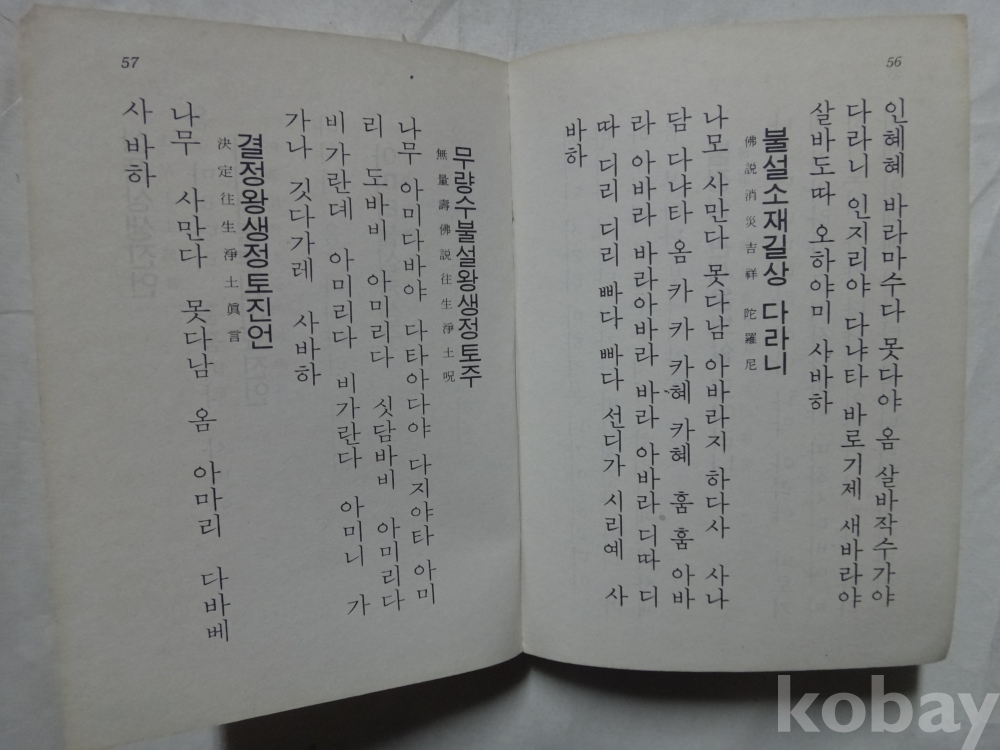 56
인혜혜 바라마수다 못다야 옴 살바작수가야
다라니 인지리야 다냐타 바로기제 새바라야
살바도따 오하야미 사바하
불설소재길상 다라니
佛説消災吉祥 陀羅尼
나모 사만다 못다남 아바라지 하다사 사나
담 다냐타 옴 카 카 카혜 카혜 훔 훔 아바
라 아바라 바라아바라 바라 아바라 디따 디
따 디리 디리 빠다 빠다 선디가 시리예 사
바하
57
무량수불설왕생정토주
無量壽佛説往生淨土呪
나무 아미다바야 다타아다야 다지야타 아미
리 도바비 아미리다 싯담바비 아미리다
비가란데 아미리다 비가란다 아미니 가
가나 깃다가레 사바하
결정왕생정토진언
決定往生淨土眞言
나무 사만다 못다남 옴 아마리 다바베
사바하
kobay